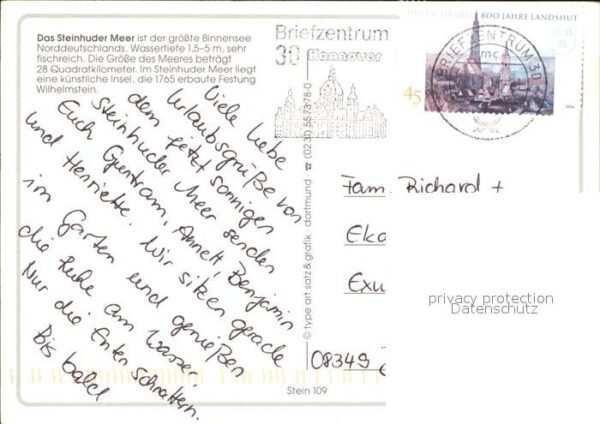 Das Steinhuder Meer ist der größte Binnensee
Norddeutschlands. Wassertiefe 1,5–5 m, sehr
fischreich. Die Größe des Meeres beträgt
28 Quadratkilometer. Im Steinhuder Meer liegt
eine künstliche Insel, die 1765 erbaute Festung
Wilhelmstein.
Viele liebe
Urlaubsgrüße von
dem jetzt sonnigen
Steinhuder Meer senden
Euch Guntram, Annett, Benjamin
und Henriette. Wir sitzen gerade
im Garten und genießen
die Ruhe am Wasser.
Nur die Enten schnattern.
Bis bald
© type art satz & grafik · dortmund ☎ (02 30) 55 73 78-0
Stein 109
Briefzentrum
30 Hannover
DEUTSCHLAND 800 JAHRE LANDSHUT
45
BRIEFZENTRUM 30
Fam. Richard +
Eka
Exu
08349
privacy protection
Datenschutz